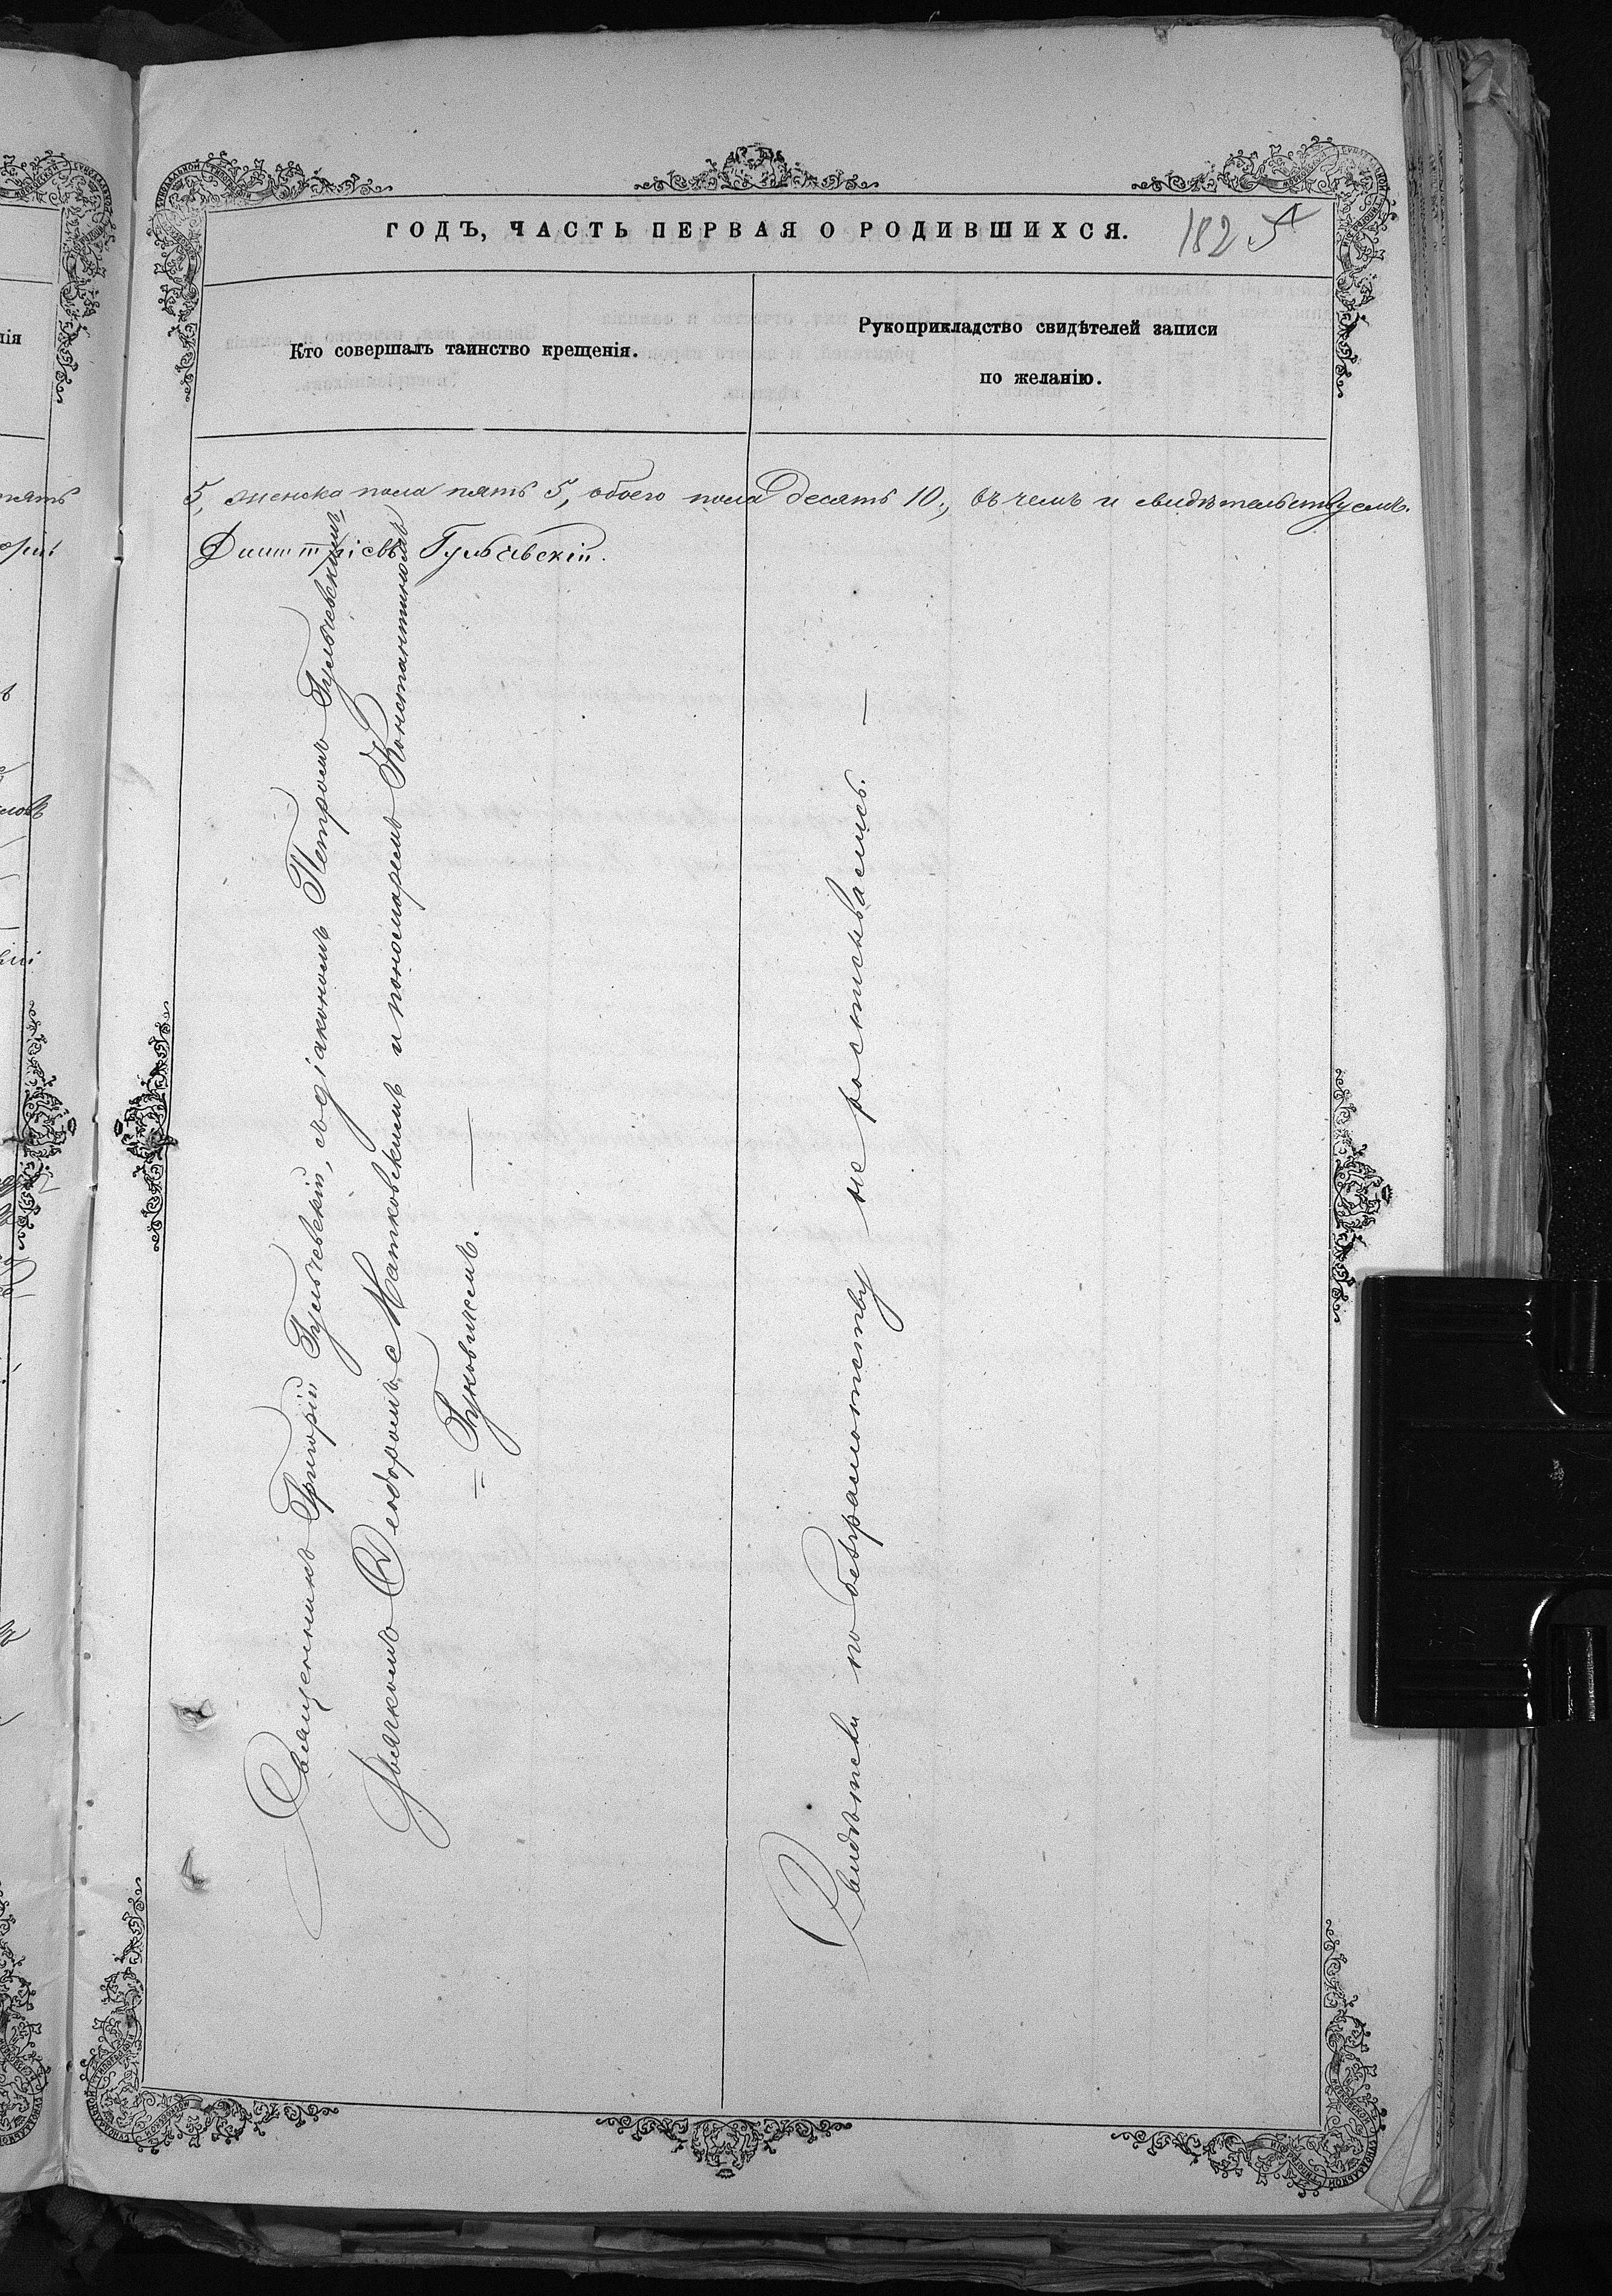 ГОДЪ, ЧАСТЬ ПЕРВАЯ О РОДИВШИХСЯ.
182
Кто совершалъ таинство крещенія.
Рукоприкладство свидѣтелей записи
по желанію.
5, женска пола пять 5, обоего пола десять 10., въ чемъ и свидѣтельствуемъ.
Священникъ Григорій Гульчевскій, съ діакономъ Петромъ Гульчевскимъ,
дьячкомъ Ѳеодоромъ Матковскимъ и пономаремъ Константиномъ
= Буковичемъ. —
Свидѣтели по безграмотству не росписывались. —